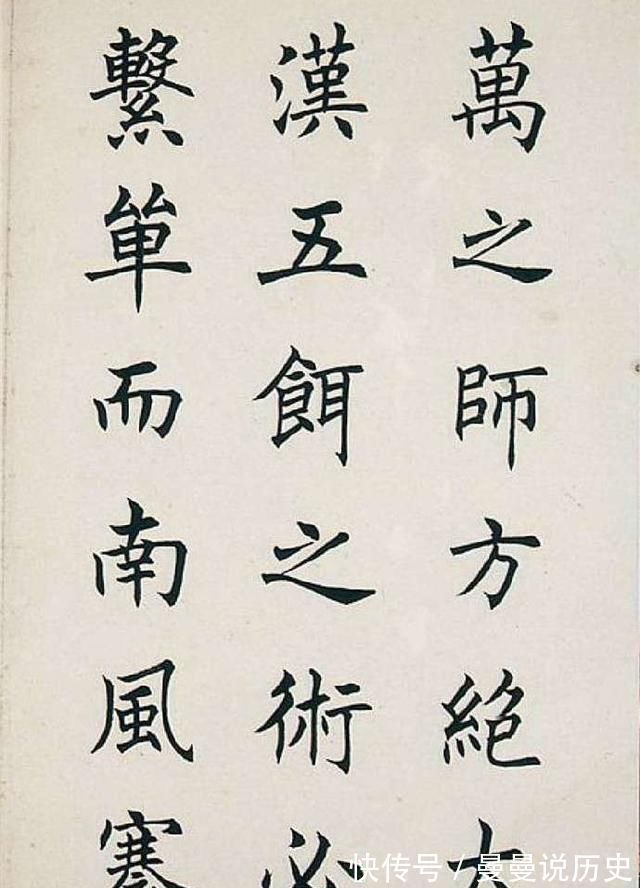 萬之師方絶大
漢五餌之術必
繫單而南風
快传号 / 曼曼说历史